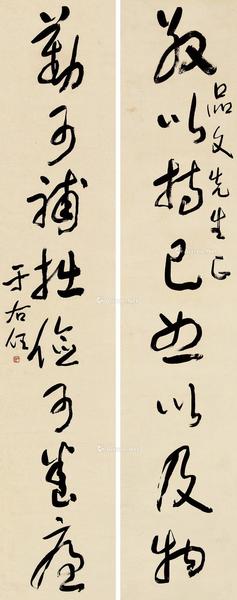 敬以持己恕以及物
品文先生正
勤可補拙儉可養廉
于右任